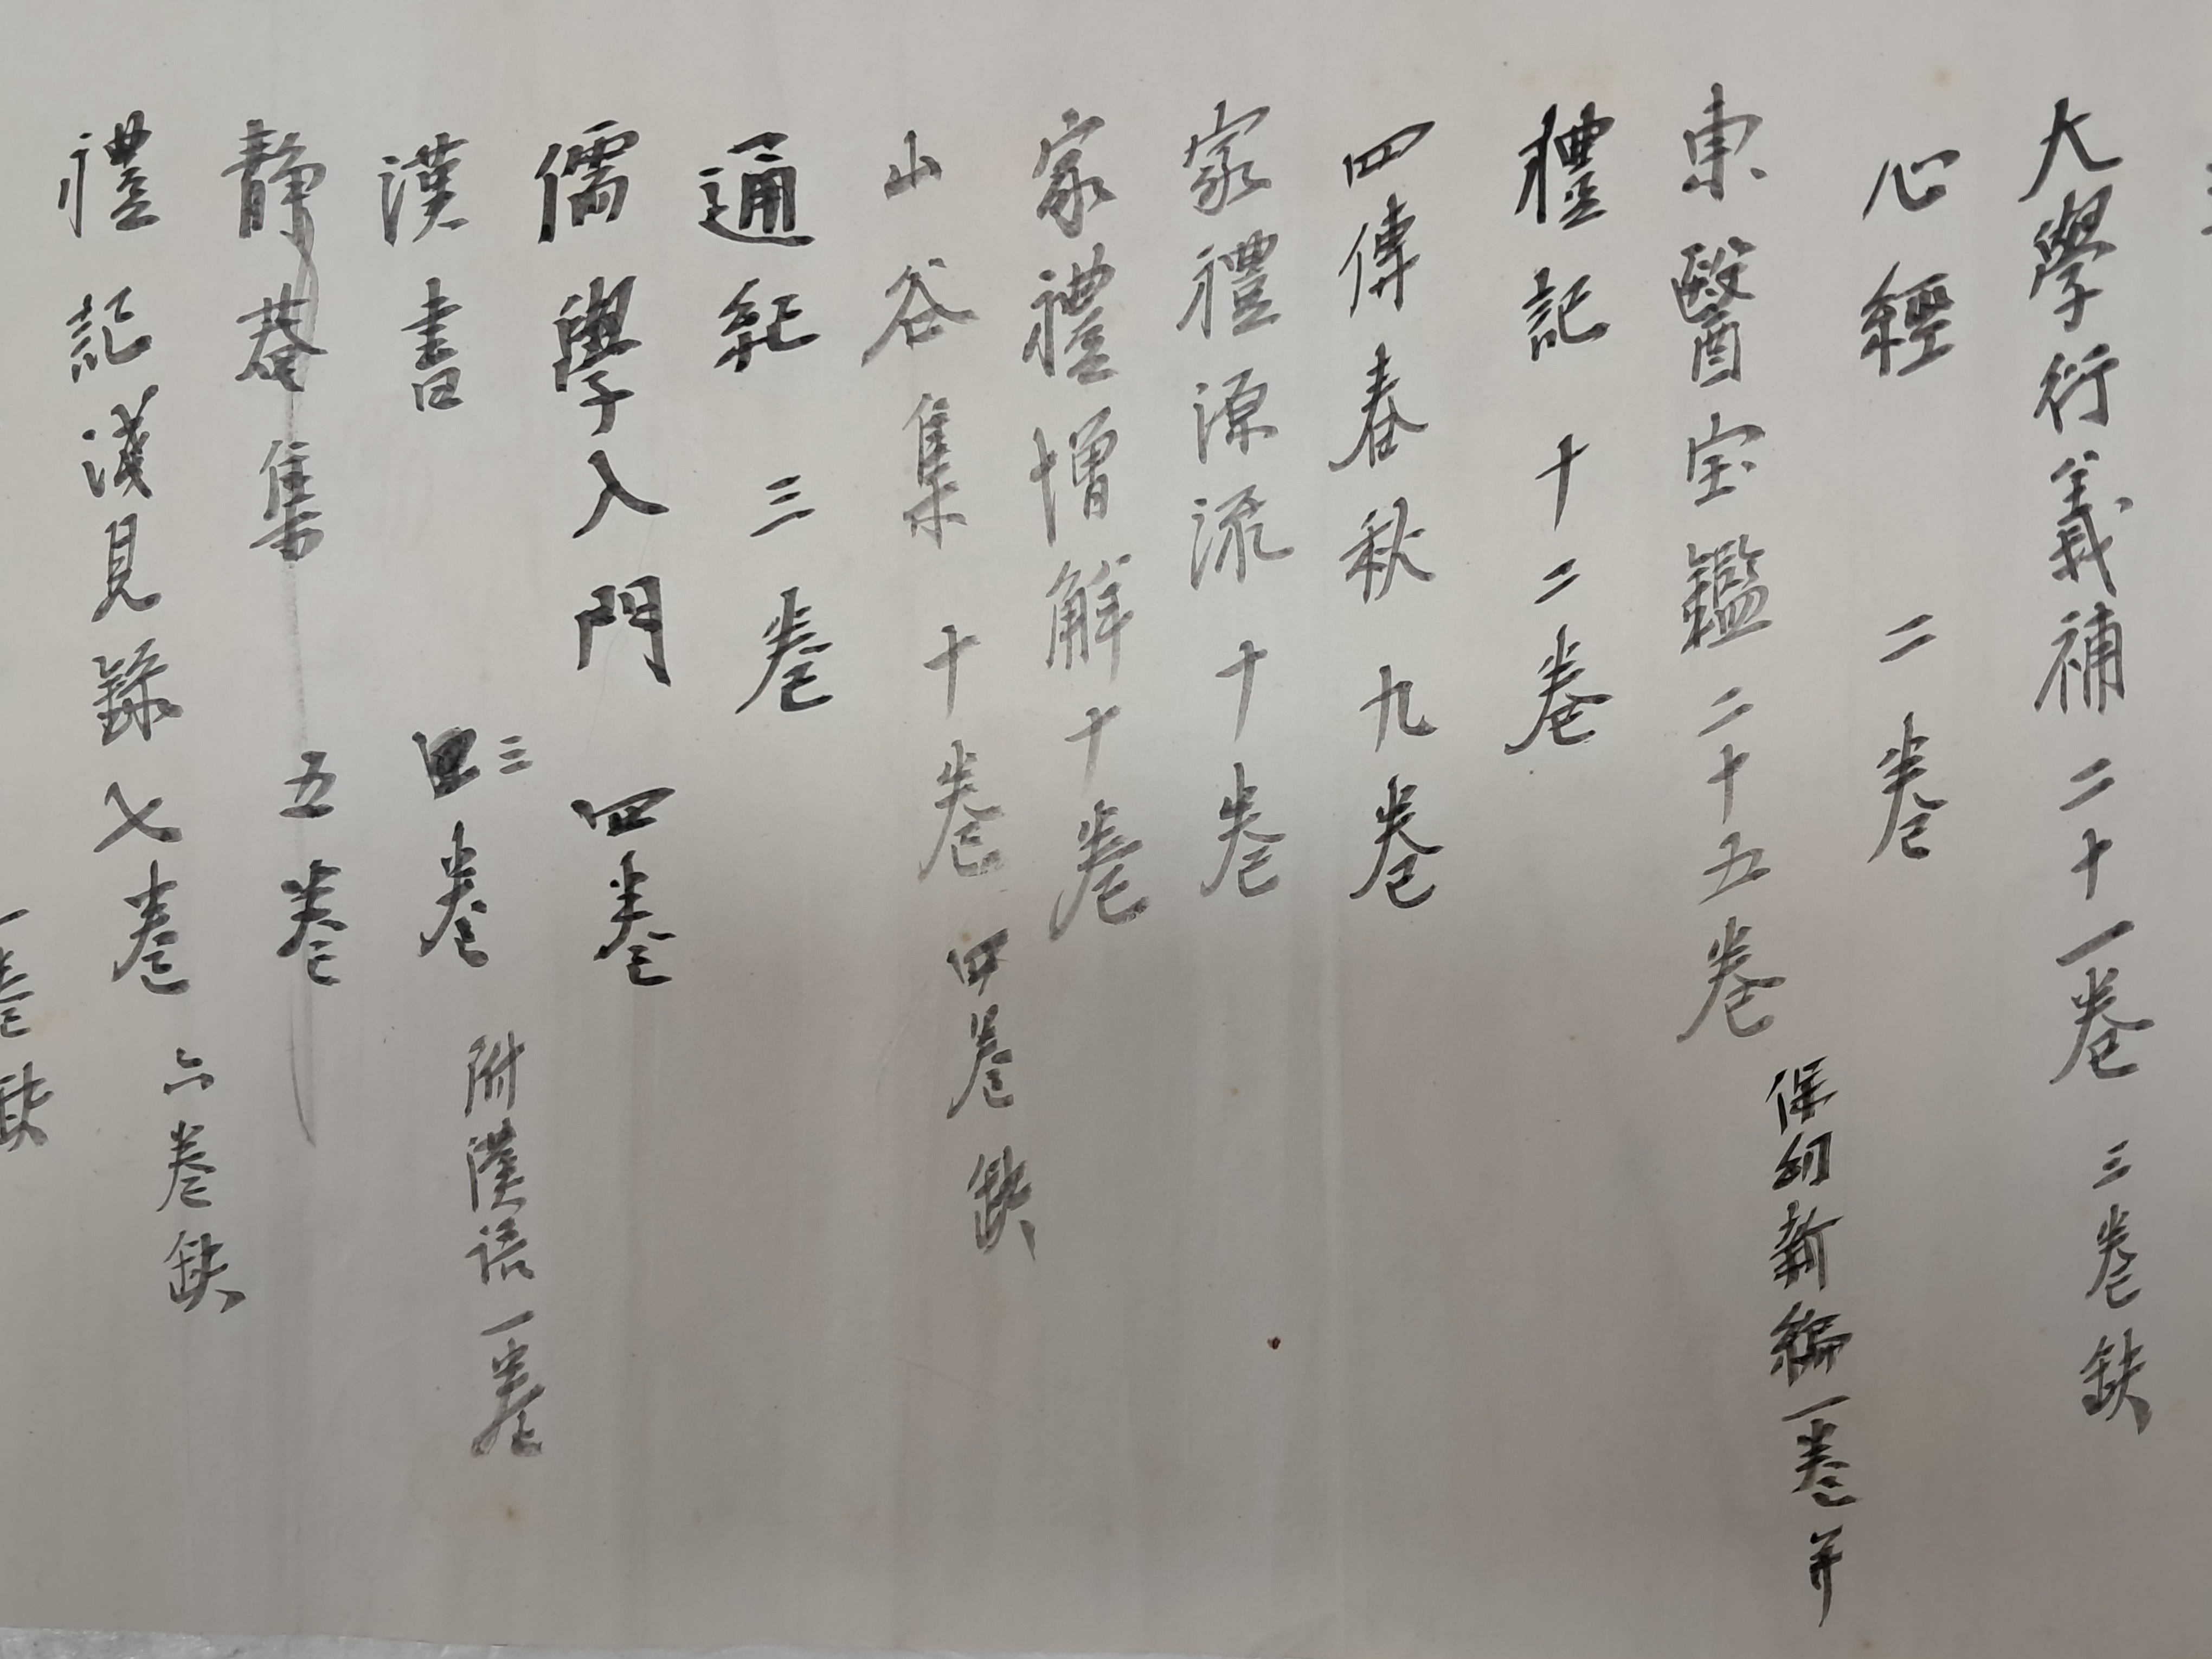 大學衍義補 二十一卷 三卷缺
心經 二卷
東醫宝鑑 二十五卷 保幼新編一卷并
禮記 十二卷
四傳春秋 九卷
家禮源流 十卷
家禮增解 十卷
山谷集 十卷 四卷缺
通紀 三卷
儒學入門 四卷
漢書 三卷 附漢語一卷
靜菴集 五卷
禮記淺見錄 七卷 六卷缺
一卷缺